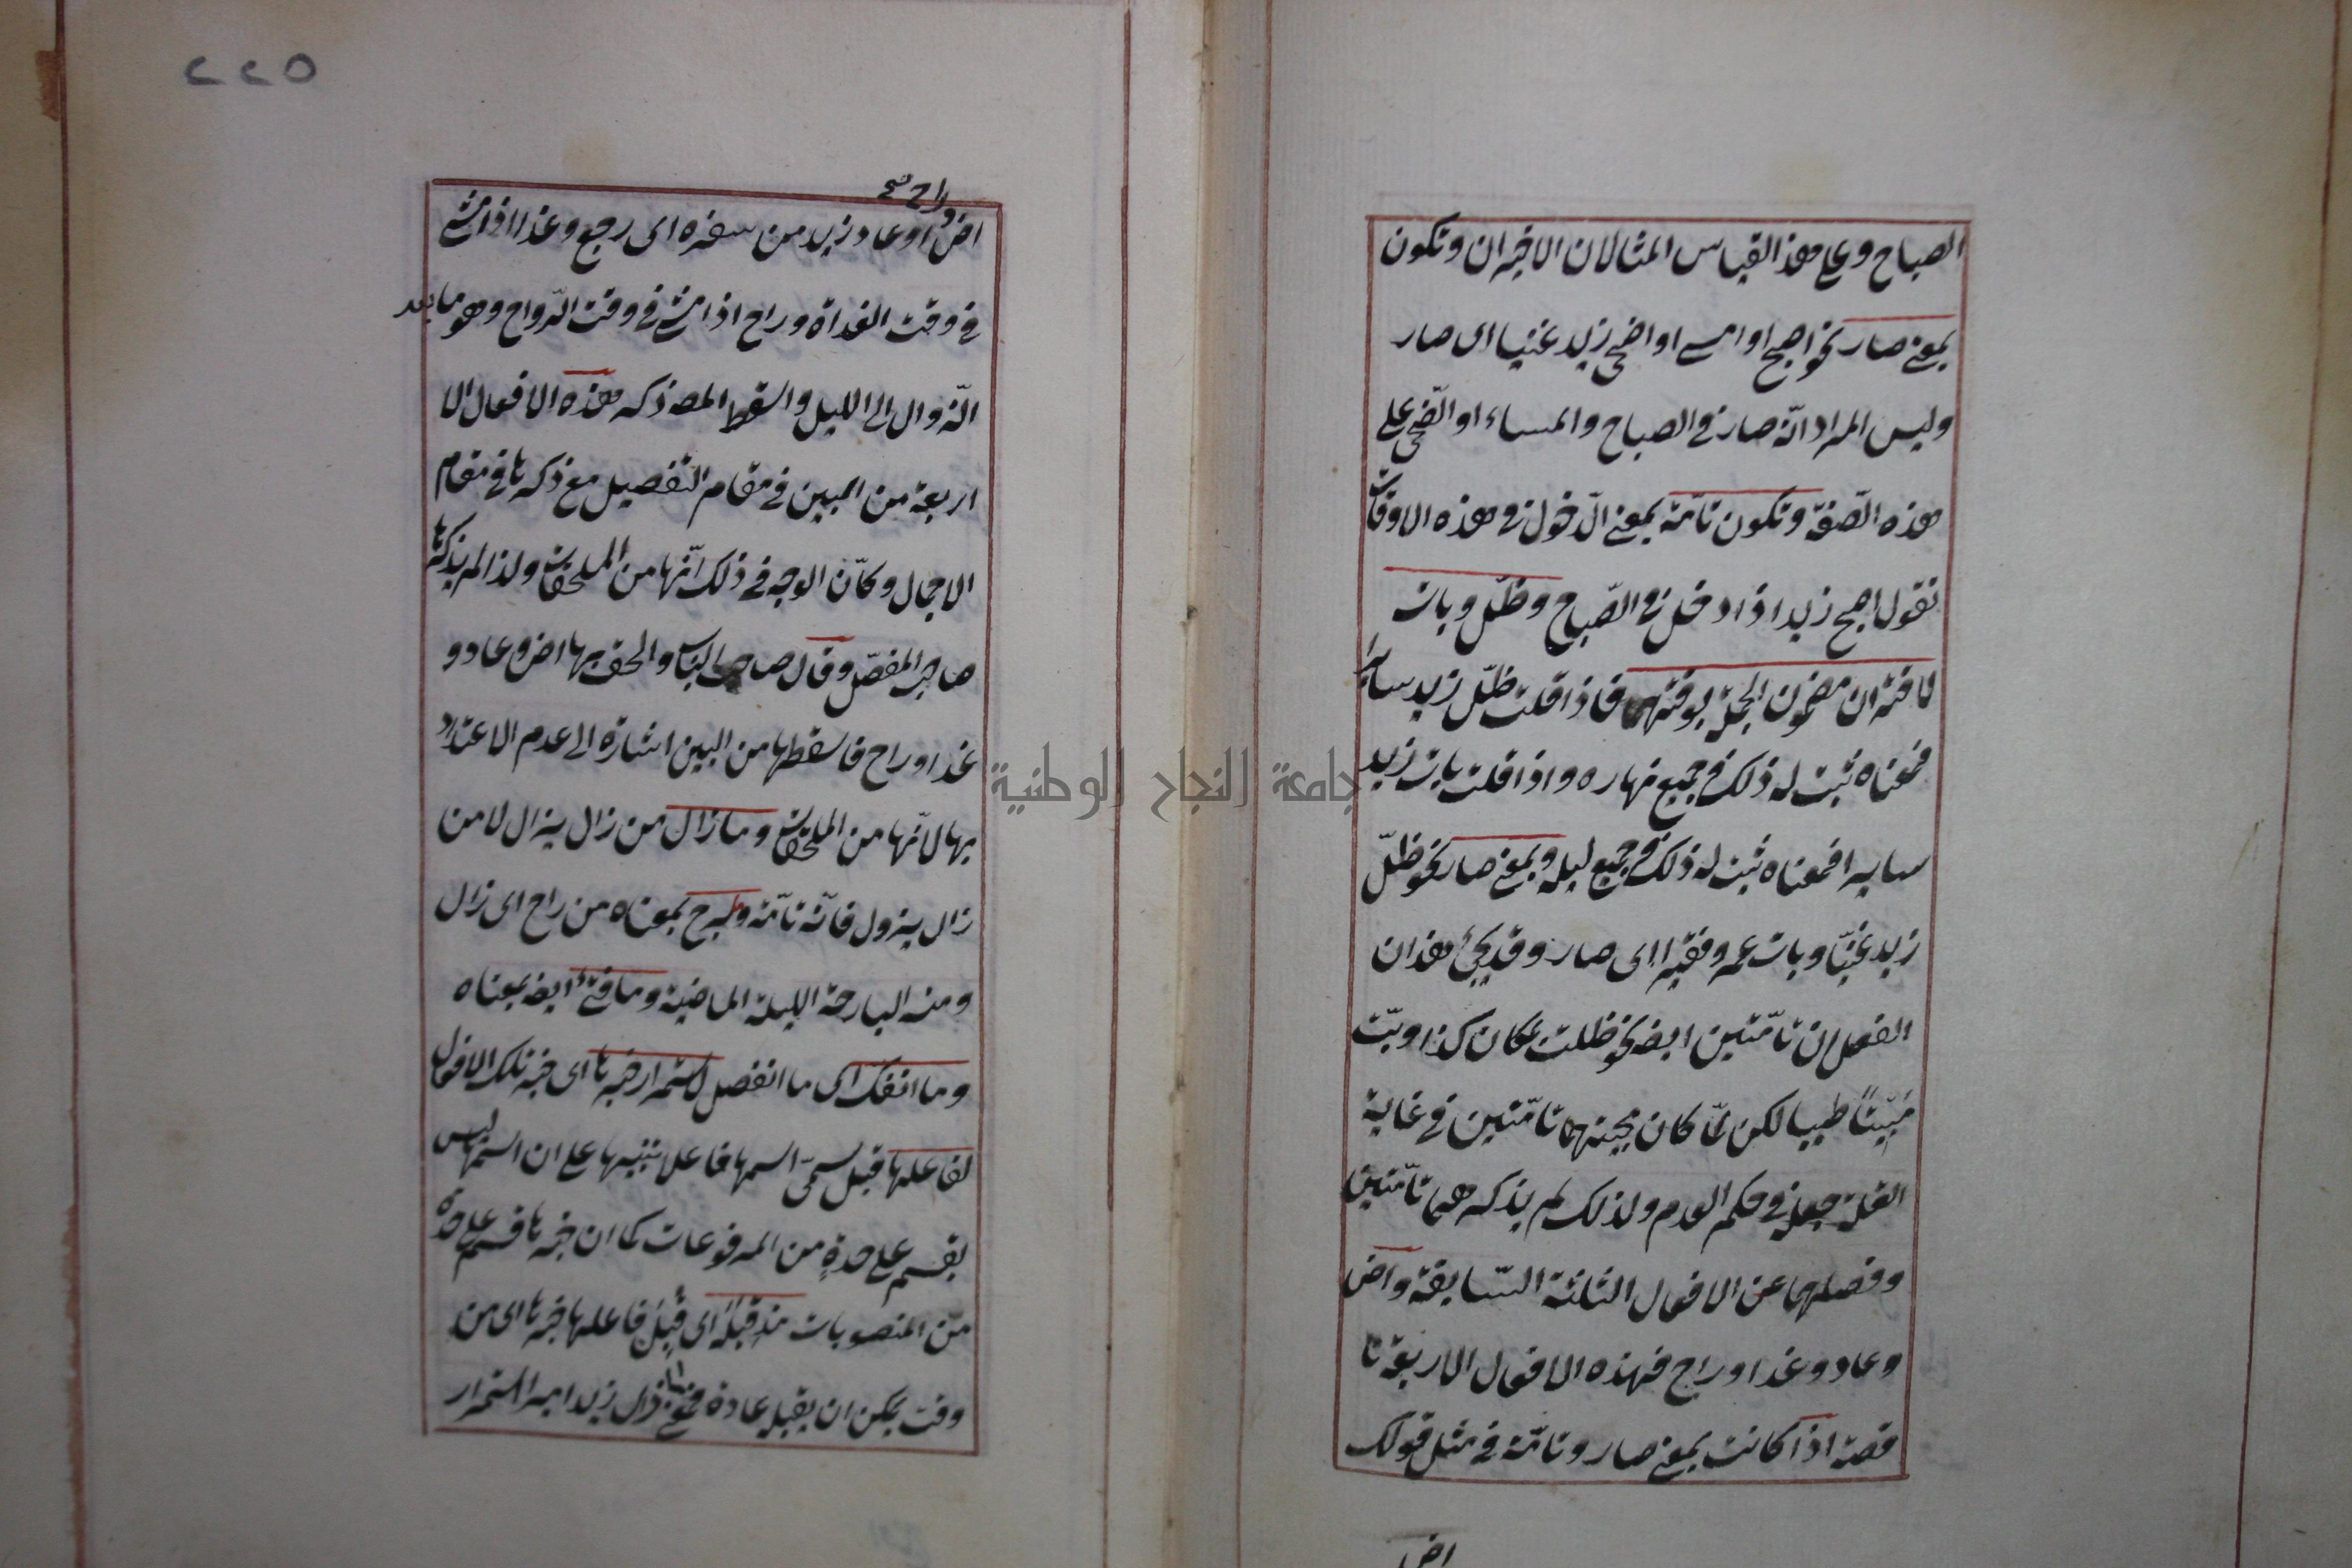 الصباح وعلى هذا القياس المثالان الاخيران وتكون
بمعنى صار نحو اصبح او امسى او اضحى زيد غنيا اى صار
وليس المراد انّه صار فى الصباح والمساء او الضّحى على
هذه الصّفة وتكون تامّة بمعنى الدّخول فى هذه الاوقات
تقول اصبح زيد اذا دخل فى الصّباح وظلّ وبات
لاقتران مضمون الجملة بوقتيهما فاذا قلت ظلّ زيد سايرا
فمعناه ثبت له ذلك فى جميع نهاره واذا قلت بات زيد
سايرا فمعناه ثبت له ذلك فى جميع ليله وبمعنى صار نحو ظلّ
زيد غنيّا وبات عمرو فقيرا اى صار وقد يجئ هذان
الفعلان تامّتين ايضا نحو ظللت بمكان كذا وبتّ
مَبِيتًا طيبا لكن لمّا كان مجيئهما تامّتين فى غاية
القلة جعل فى حكم العدم ولذلك لم يذكرهما تامّتين
وفصلهما عن الافعال الثلثة السّابقة واض
وعاد وغدا وراح فهذه الافعال الاربعة نا
قصة اذا كانت بمعنى صار وتامّة فى مثل قولك
اض
٢٢٥
راح صح
اض او عاد زيد من سفره اى رجع وغدا اذا مشى
فى وقت الغداة وراح اذا مشى فى وقت الرّواح وهو ما بعد
الزّوال الى الليل واسقط المصـ ذكر هذه الافعال الا
اربعة من البين فى مقام التفصيل مع ذكرها فى مقام
الاجمال وكانّ الوجه فى ذلك انّها من الملحقات ولذا لم يذكرها
صاحب المفصّل وقال صاحب اللباب والحق بها اض وعاد و
غدا وراح فاسقطها من البين اشارة الى عدم الاعتداد
بها لانّها من الملحقات وما زال من زال يزال لا من
زال يزول فانّه تامّة وما برح بمعناه من راح اى زال
ومنه البارحة الليلة الماضية وما فتئ ايضا بمعناه
وما انفك اى ما انفصل لاستمرار خبرها اى خبر تلك الافعال
لفاعلها قيل سمّى اسمها فاعلا تنبيها على ان اسمها ليس
بقسم على حدةٍ من المرفوعات كما ان خبرها قسم على حدة
من المنصوبات مذ قبله اى قَبِلَ فاعلها خبرها اى من
وقت يمكن ان يقبله عادة فمعنى ما زال زيد اميرا استمرار
جامعة النجاح الوطنية